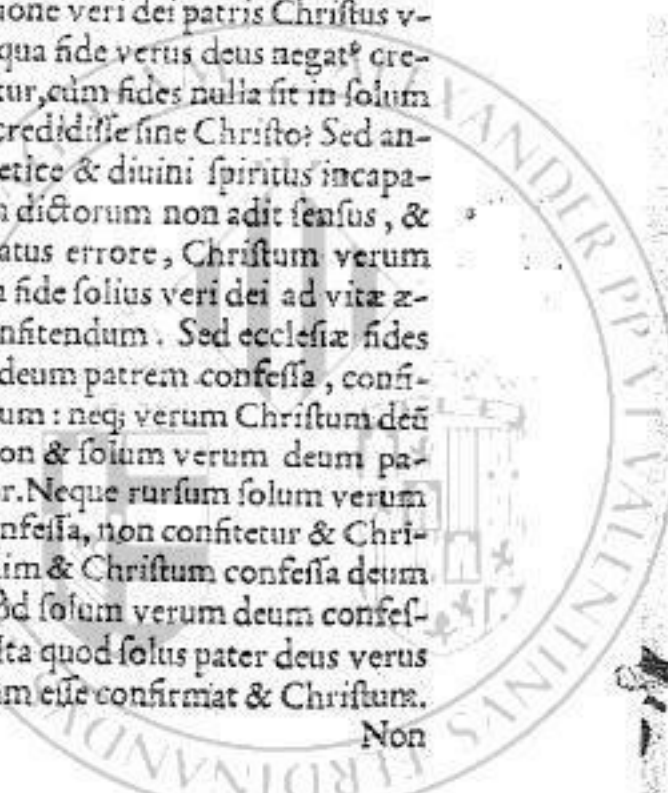 ione veri dei patris Chriſtus v-
qua fide verus deus negatꝰ cre-
tur, cùm fides nulla ſit in ſolum
credidiſſe ſine Chriſto? Sed an-
etice & diuini ſpiritus incapa-
dictorum non adit ſenſus, &
atus errore, Chriſtum verum
fide ſolius veri dei ad vitæ æ-
nfitendum. Sed eccleſiæ fides
deum patrem confeſſa, confi-
um: neq; verum Chriſtum deū
on & ſolum verum deum pa-
r. Neque rurſum ſolum verum
nfeſſa, non confitetur & Chri-
im & Chriſtum confeſſa deum
òd ſolum verum deum confeſ-
Ita quod ſolus pater deus verus
m eſſe confirmat & Chriſtum.
Non
ALEXANDER PP VI VALENTINVS FERDINANDVS